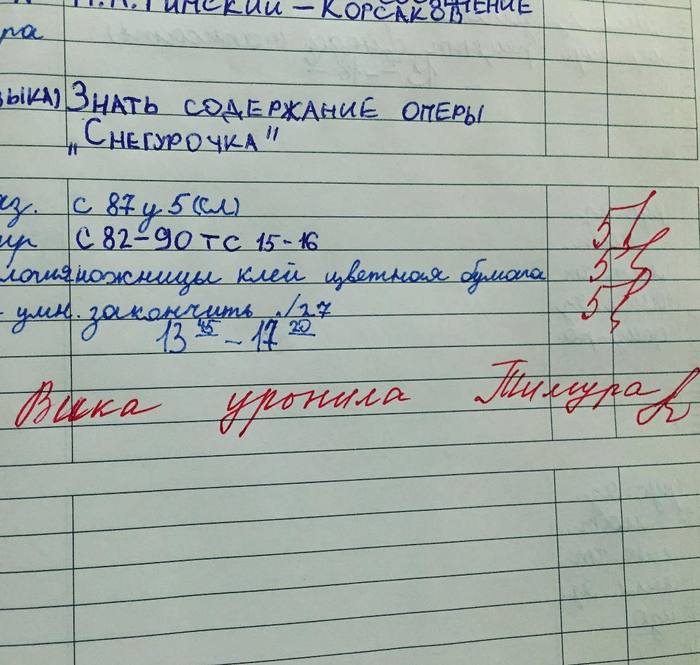 Н.А. Римский – Корсаков
ра
ЗЫКА) ЗНАТЬ СОДЕРЖАНИЕ ОПЕРЫ
„СНЕГУРОЧКА"
аз. с 87 у 5 (Сл) 5
ир С 82–90 ТС 15-16 5
логия ножницы клей цветная бумага 5
умн. закончить
13 45 – 17 20
Вика уронила Тимура